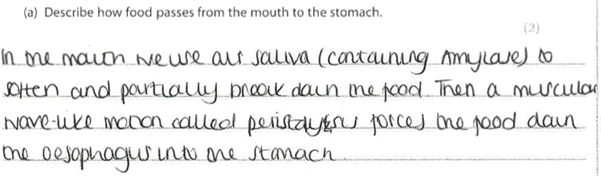 (a) Describe how food passes from the mouth to the stomach.
(2)
In the mouth we use our saliva (containing Amylase) to
soften and partially break down the food Then a muscular
wave-like motion called peristalysis forces the food down
the oesophagus into the stomach